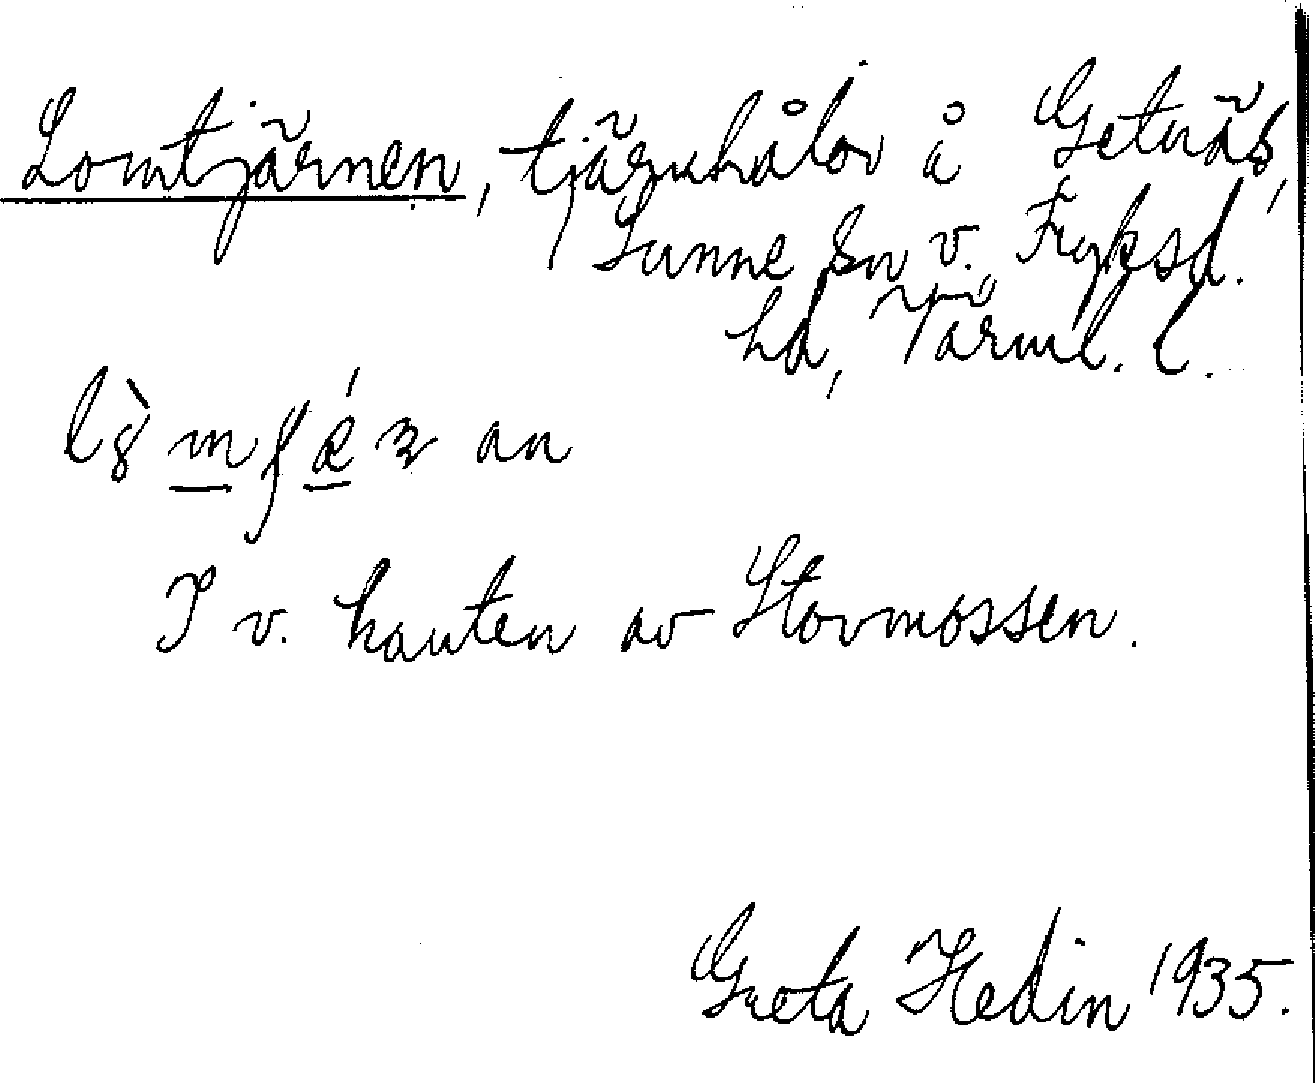 Lomtjärnen, tjärnhålor å Getnäs,
Sunne sn v. Fryksd.
hd, Värml. l.
I v. kanten av Stormossen.
Greta Hedin 1935.